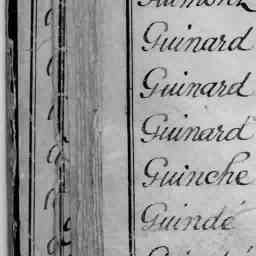 Guinard
Guinard
Guinard
Guinche
Guindé